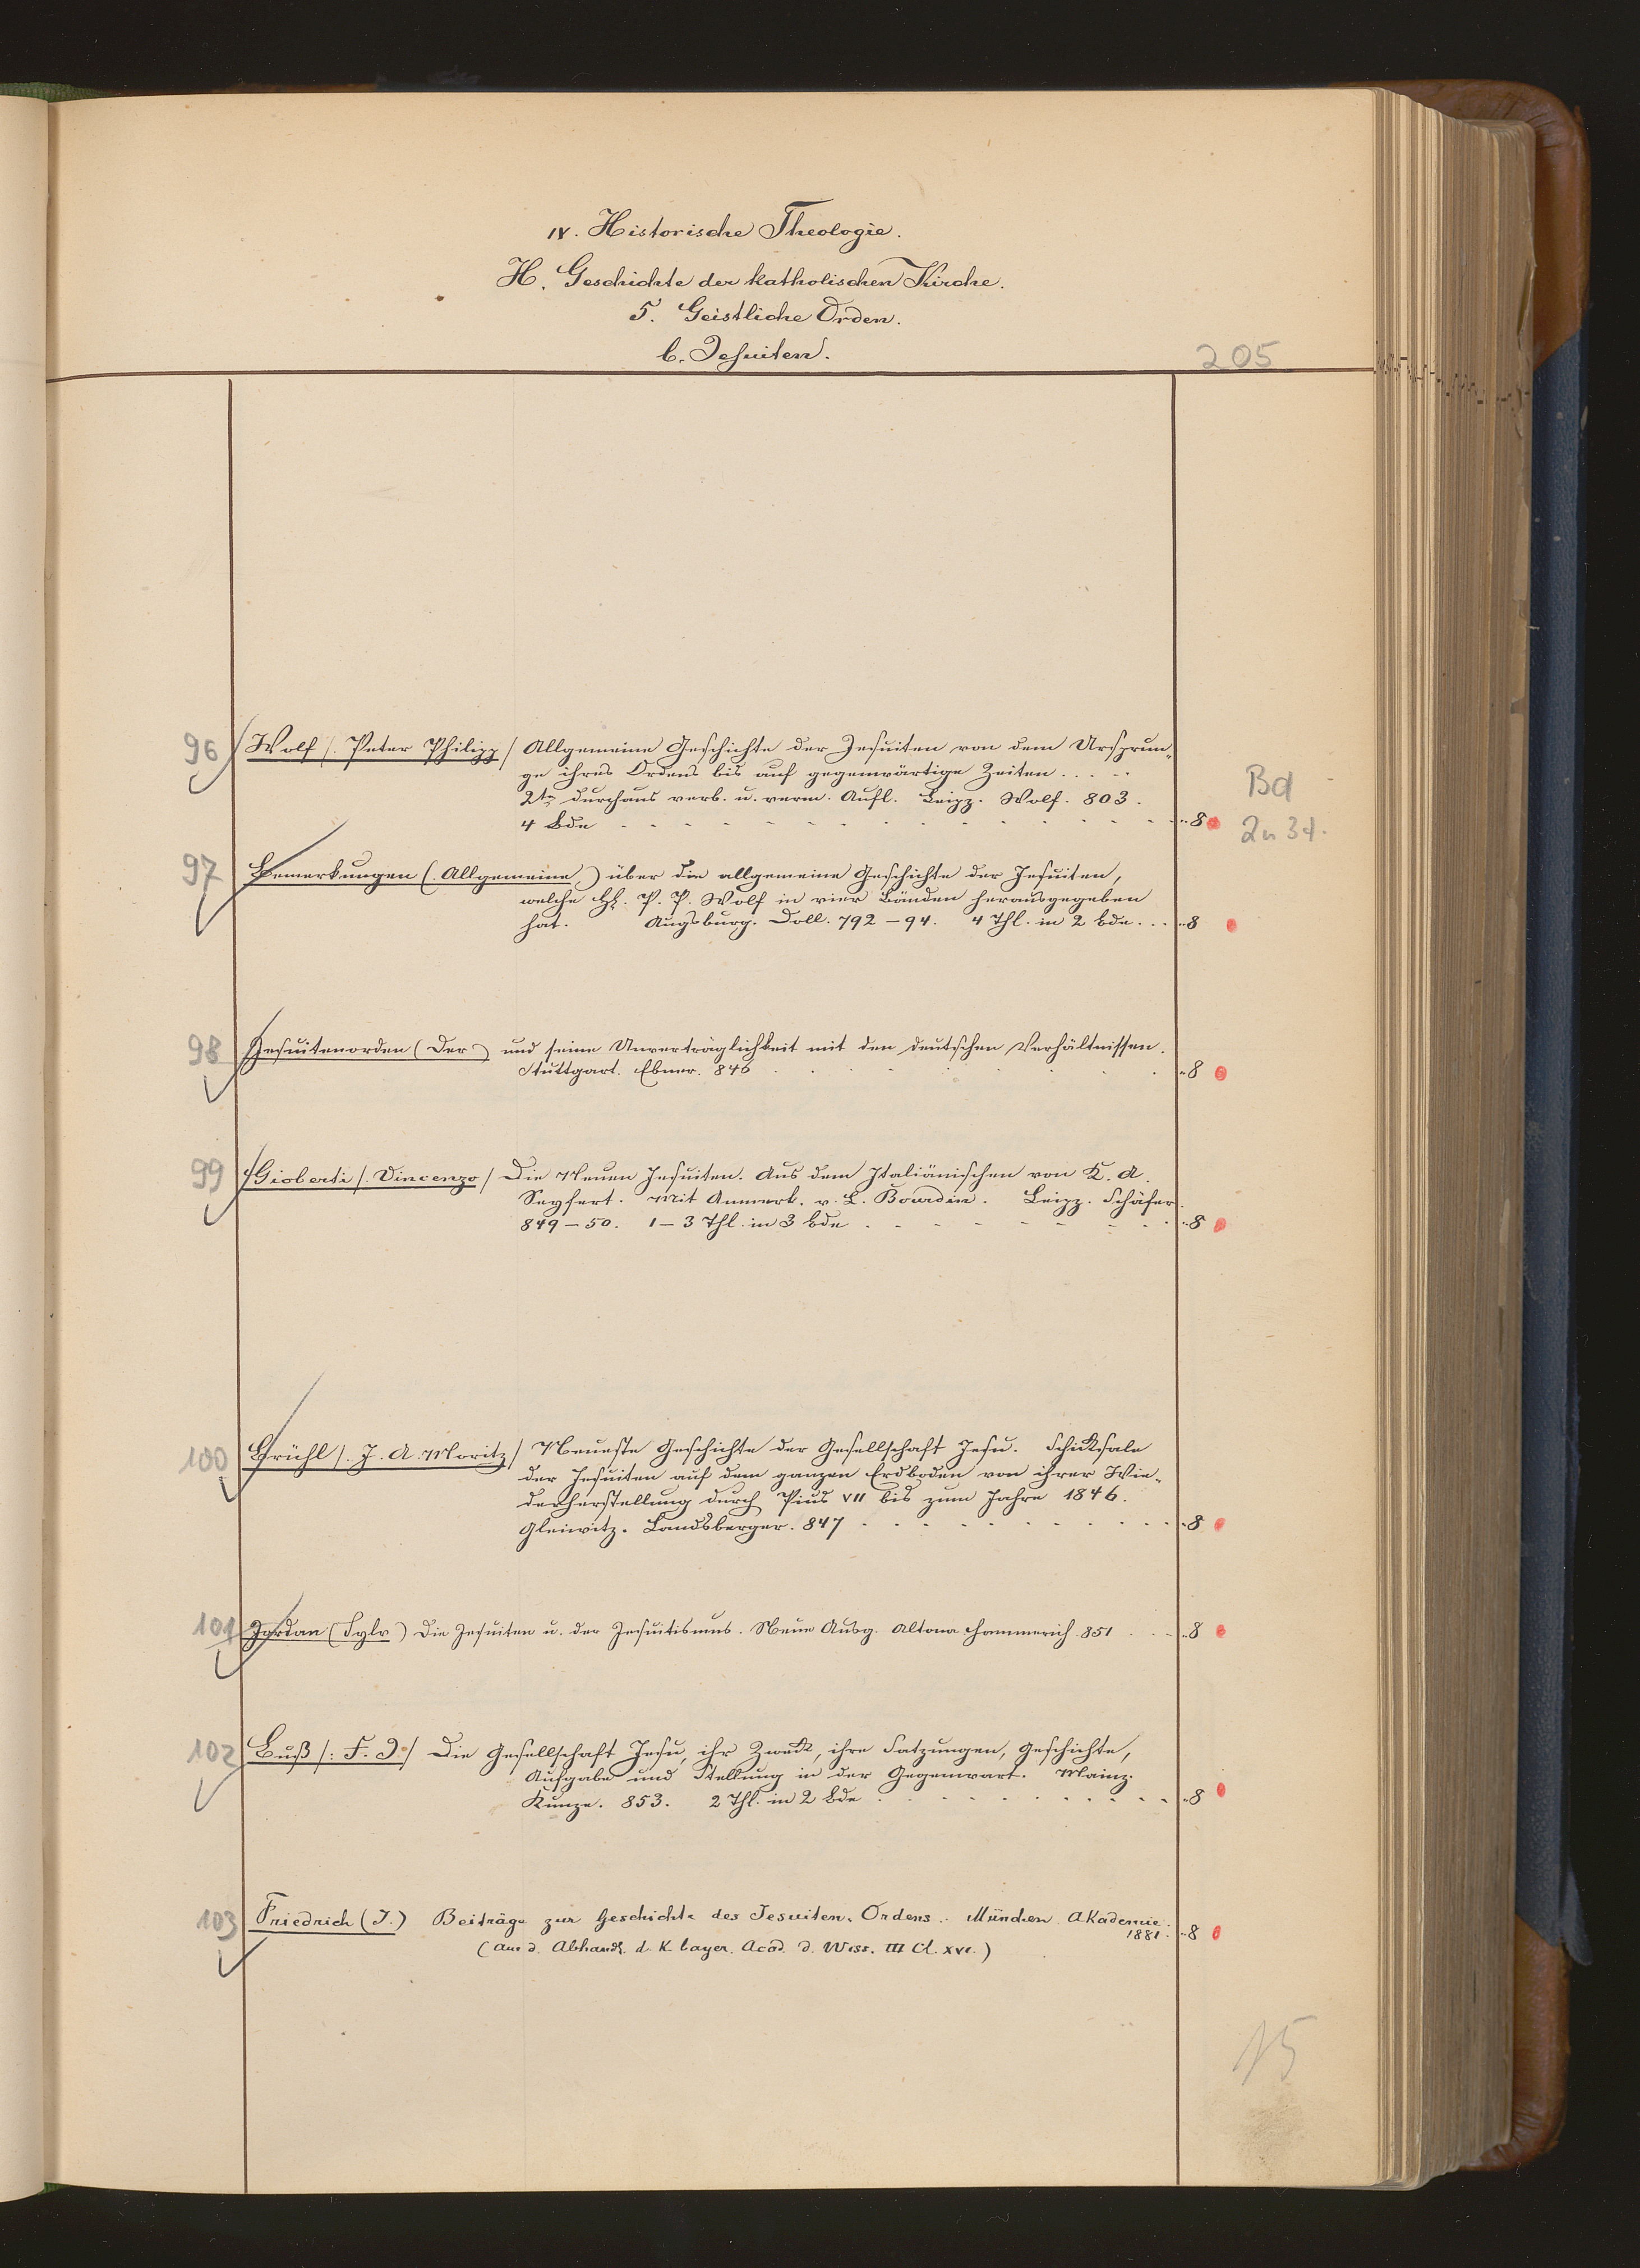 IV. Historische Theologie.
H. Geschichte der katholischen Kirche.
5. Geistliche Orden.
b. Jesuiten.
205
96 Wolf /. Peter Philipp / Allgemeine Geschichte der Jesuiten von dem Ursprun-
ge ihres Ordens bis auf gegenwärtige Zeiten . . . . .
2te durchaus verb. u. verm. Aufl. Leipz. Wolf. 803.
4 Bde . . . . . 8
Bd
2 u 3 f.
97 Bemerkungen (. Allgemeine ) über die allgemeine Geschichte der Jesuiten,
welche H. P. P. Wolf in vier Bänden herausgegeben
hat. Augsburg. Doll. 792 – 94. 4 Thl. in 2 Bde. . . 8
98 Jesuitenorden ( Der ) und seine Unverträglichkeit mit den deutschen Verhältnissen.
Stuttgart. Ebner. 846 . . . . . 8
99 Gioberti /. Vincenzo / Die Neuen Jesuiten. Aus dem Italiänischen von K. A.
Seyfert. Mit Anmerk. v. L. Bourdin. Leipz. Schäfer.
849 – 50. 1 – 3 Thl. in 3 Bde . . . . . 8
100 Brühl /. J. A. Moritz / Neueste Geschichte der Gesellschaft Jesu. Schicksale
der Jesuiten auf dem ganzen Erdboden von ihrer Wie-
derherstellung durch Pius VII bis zum Jahre 1846.
Gleiwitz. Landsberger. 847 . . . . . 8
101 Jordan ( Sylv ) Die Jesuiten u. der Jesuitismus. Neue Ausg. Altona Hammerich. 851 . . . 8
102 Buß /: F. J. / Die Gesellschaft Jesu, ihr Zweck, ihre Satzungen, Geschichte,
Aufgabe und Stellung in der Gegenwart. Mainz.
Kunze. 853. 2 Thl. in 2 Bde . . . . . 8
103 Friedrich ( J. ) Beiträge zur Geschichte des Jesuiten-Ordens. München. Akademie.
1881. 8
( Aus d. Abhandl. d. K. bayer. Acad. d. Wiss. III Cl. XVI. )
15